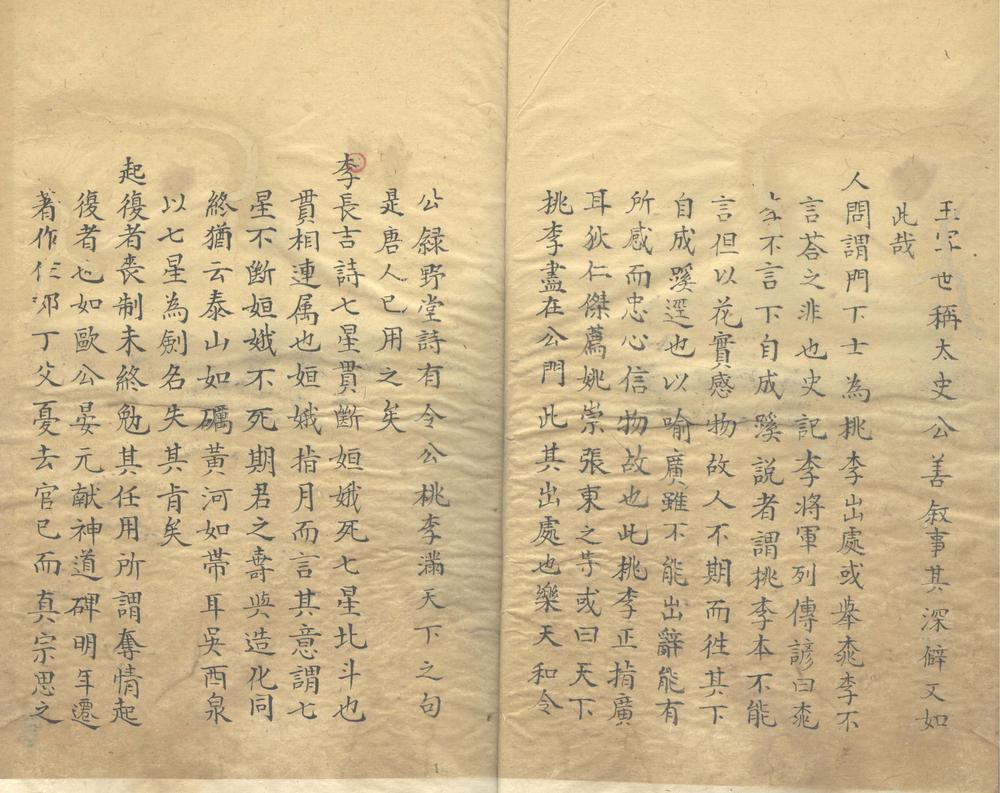 五字世稱太史公善叙事其深僻又如
此哉
人問謂門下士為桃李出處或舉桃李不
言荅之非也史記李將軍列傳諺曰桃
李不言下自成蹊說者謂桃李本不能
言但以花實感物故人不期而徃其下
自成蹊逕也以喻廣雖不能出辭能有
所感而忠心信物故也此桃李正指廣
耳狄仁傑薦姚崇張東之等或曰天下
桃李盡在公門此其出處也樂天和令
公録野堂詩有令公桃李滿天下之句
是唐人已用之矣
李長吉詩七星貫斷姮娥死七星北斗也
貫相連属也姮娥指月而言其意謂七
星不斷姮娥不死期君之壽與造化同
終猶云泰山如礪黃河如帶耳吳西泉
以七星為劍名失其肯矣
起復者喪制未終勉其任用所謂奪情起
復者也如歐公晏元献神道碑明年遷
著作佐郎丁父憂去官已而真宗思之